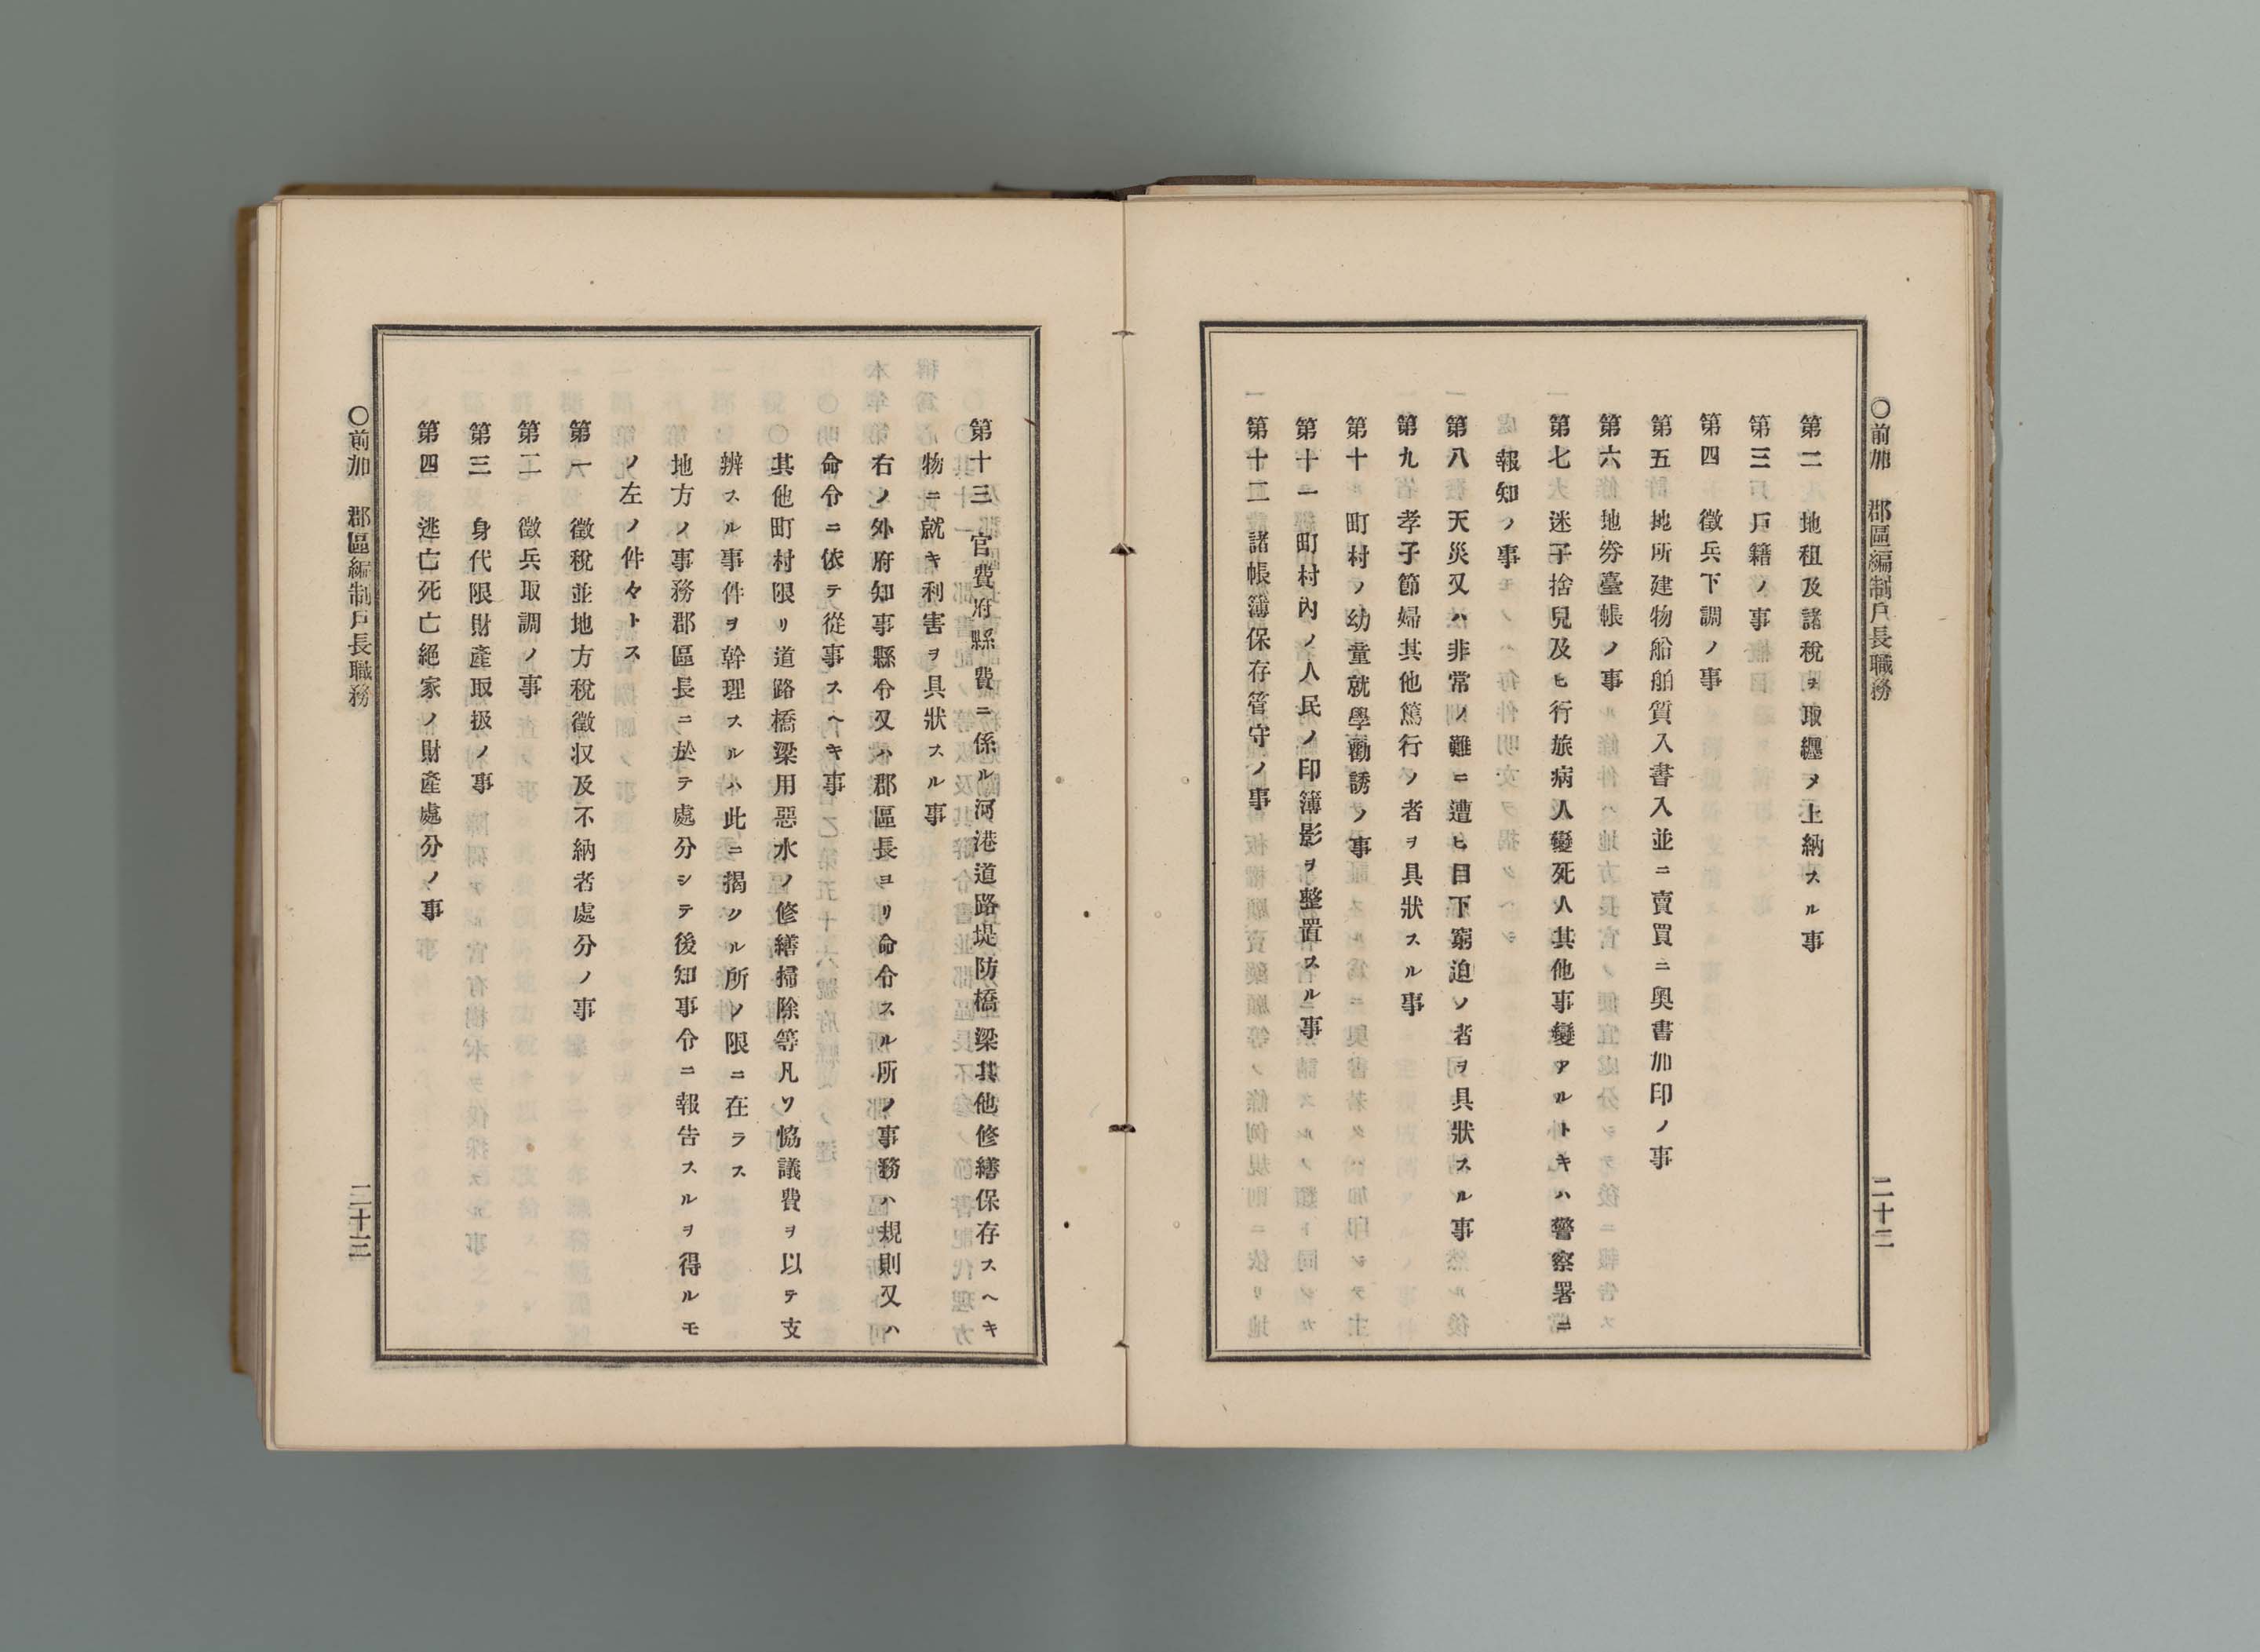 〇前加　郡區編制戶長職務　二十二
第二　地租及諸稅ヲ取纒メ上納スル事
第三　戶籍ノ事
第四　徵兵下調ノ事
第五　地所建物船舶質入書入並ニ賣買ニ奧書加印ノ事
第六　地券臺帳ノ事
第七　迷子捨兒及ヒ行旅病人變死人其他事變アルトキハ警察署ニ
報知ノ事
第八　天災又ハ非常ノ難ニ遭ヒ目下窮迫ノ者ヲ具狀スル事
第九　孝子節婦其他篤行ノ者ヲ具狀スル事
第十　町村ノ幼童就學勸誘ノ事
第十一　町村內ノ人民ノ印簿影ヲ整置スル事
第十二　諸帳簿保存管守ノ事
第十三　官費府縣費ニ係ル河港道路堤防橋梁其他修繕保存スヘキ
物ニ就キ利害ヲ具狀スル事
右ノ外府知事縣令又ハ郡區長ヨリ命令スル所ノ事務ハ規則又ハ
命令ニ依テ從事スヘキ事
其他町村限リ道路橋梁用惡水ノ修繕掃除等凡ソ恊議費ヲ以テ支
辨スル事件ヲ幹理スルハ此ニ揭クル所ノ限ニ在ラス
地方ノ事務郡區長ニ於テ處分シテ後知事令ニ報告スルヲ得ルモ
ノ左ノ件々トス
第一　徵稅並地方稅徵収及不納者處分ノ事
第二　徵兵取調ノ事
第三　身代限財產取扱ノ事
第四　逃亡死亡絕家ノ財產處分ノ事
〇前加　郡區編制戶長職務　二十三